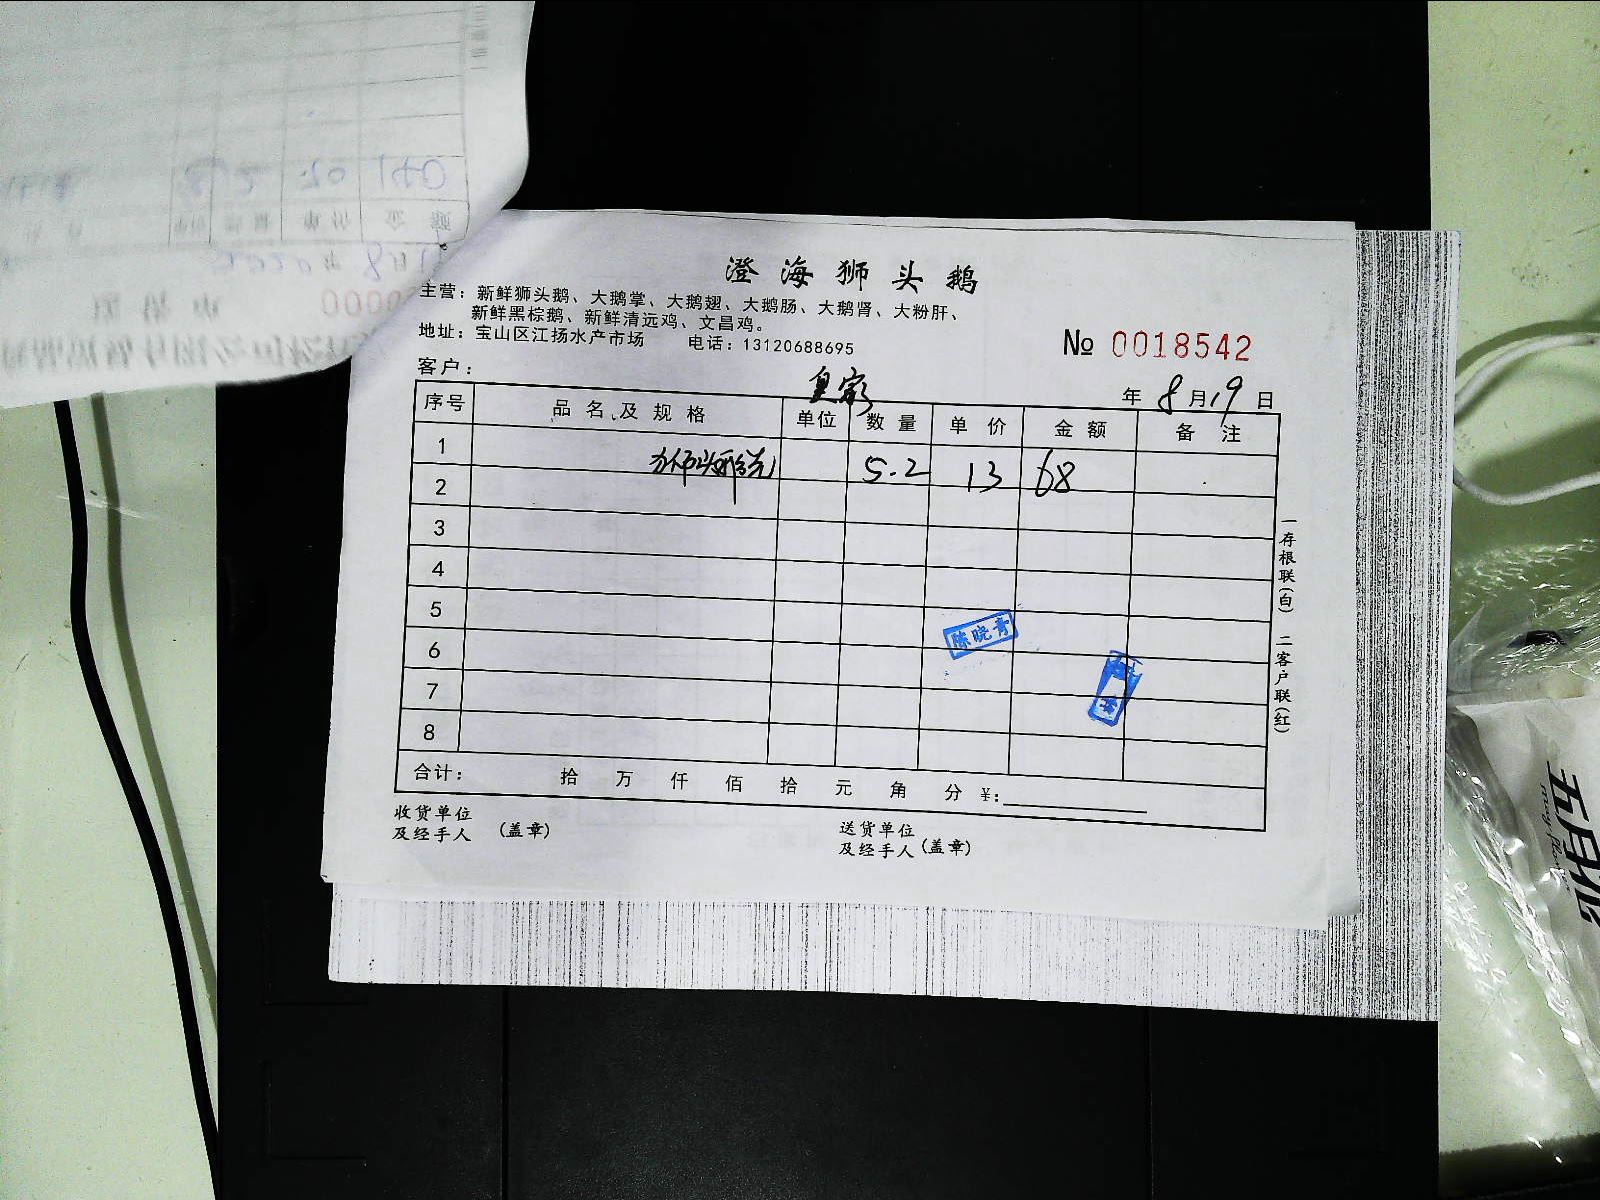 澄海狮头鹅
主营：新鲜狮头鹅、大鹅掌、大鹅翅、大鹅肠、大鹅肾、大粉肝、
新鲜黑棕鹅、新鲜清远鸡、文昌鸡。
地址：宝山区江扬水产市场 电话：13120688695
№ 0018542
客户： 皇家
年 8 月 19 日
序号 品名及规格 单位 数量 单价 金额 备注
1 5.2 13 68
2
3
4
5
6
7
8
陈晓青
合计： 拾 万 仟 佰 拾 元 角 分 ¥：
收货单位
及经手人 （盖章）
送货单位
及经手人（盖章）
一存根联（白） 二客户联（红）
五月花